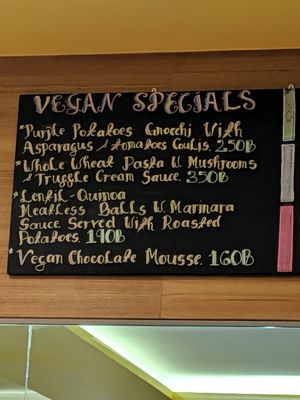 VEGAN SPECIALS
*Purple Potatoes Gnocchi With
Asparagus / tomatoes Coulis. 250B
*Whole Wheat Pasta W. Mushrooms
/ Truggle Cream Sauce. 350B
*Lentil-Quinoa
Meatless Balls W. Marinara
Sauce. Served With Roasted
Potatoes. 190B
*Vegan Chocolate Mousse. 160B